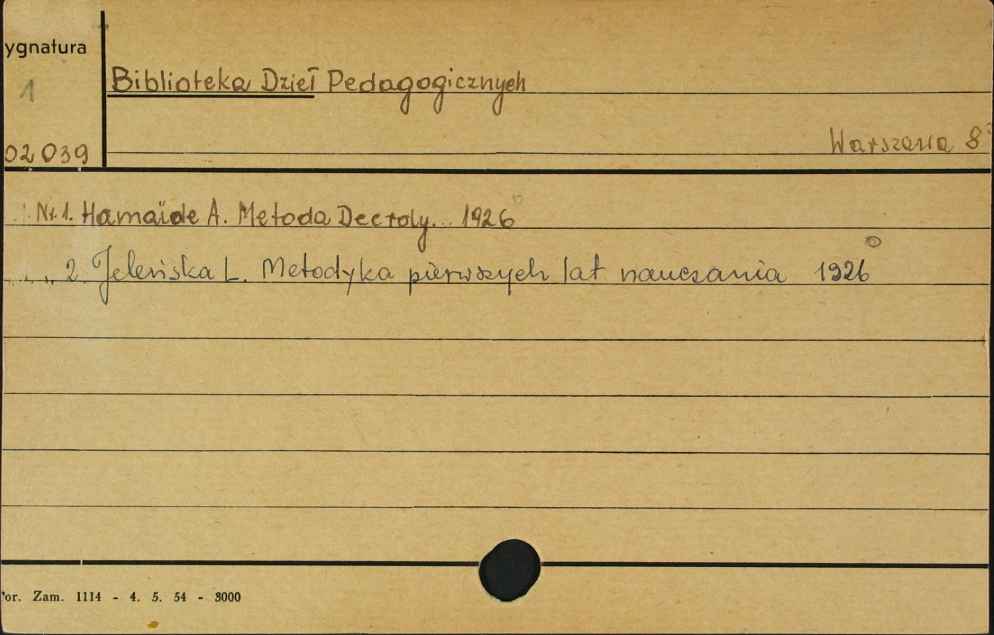 ygnatura
1
Biblioteka Dzieł Pedagogicznych
02039
Warszawa 8°
Nr. 1. Hamaïde A. Metoda Decroly... 1926
„ 2. Jeleńska L. Metodyka pierwszych lat nauczania 1926
or. Zam. 1114 - 4. 5. 54 - 3000